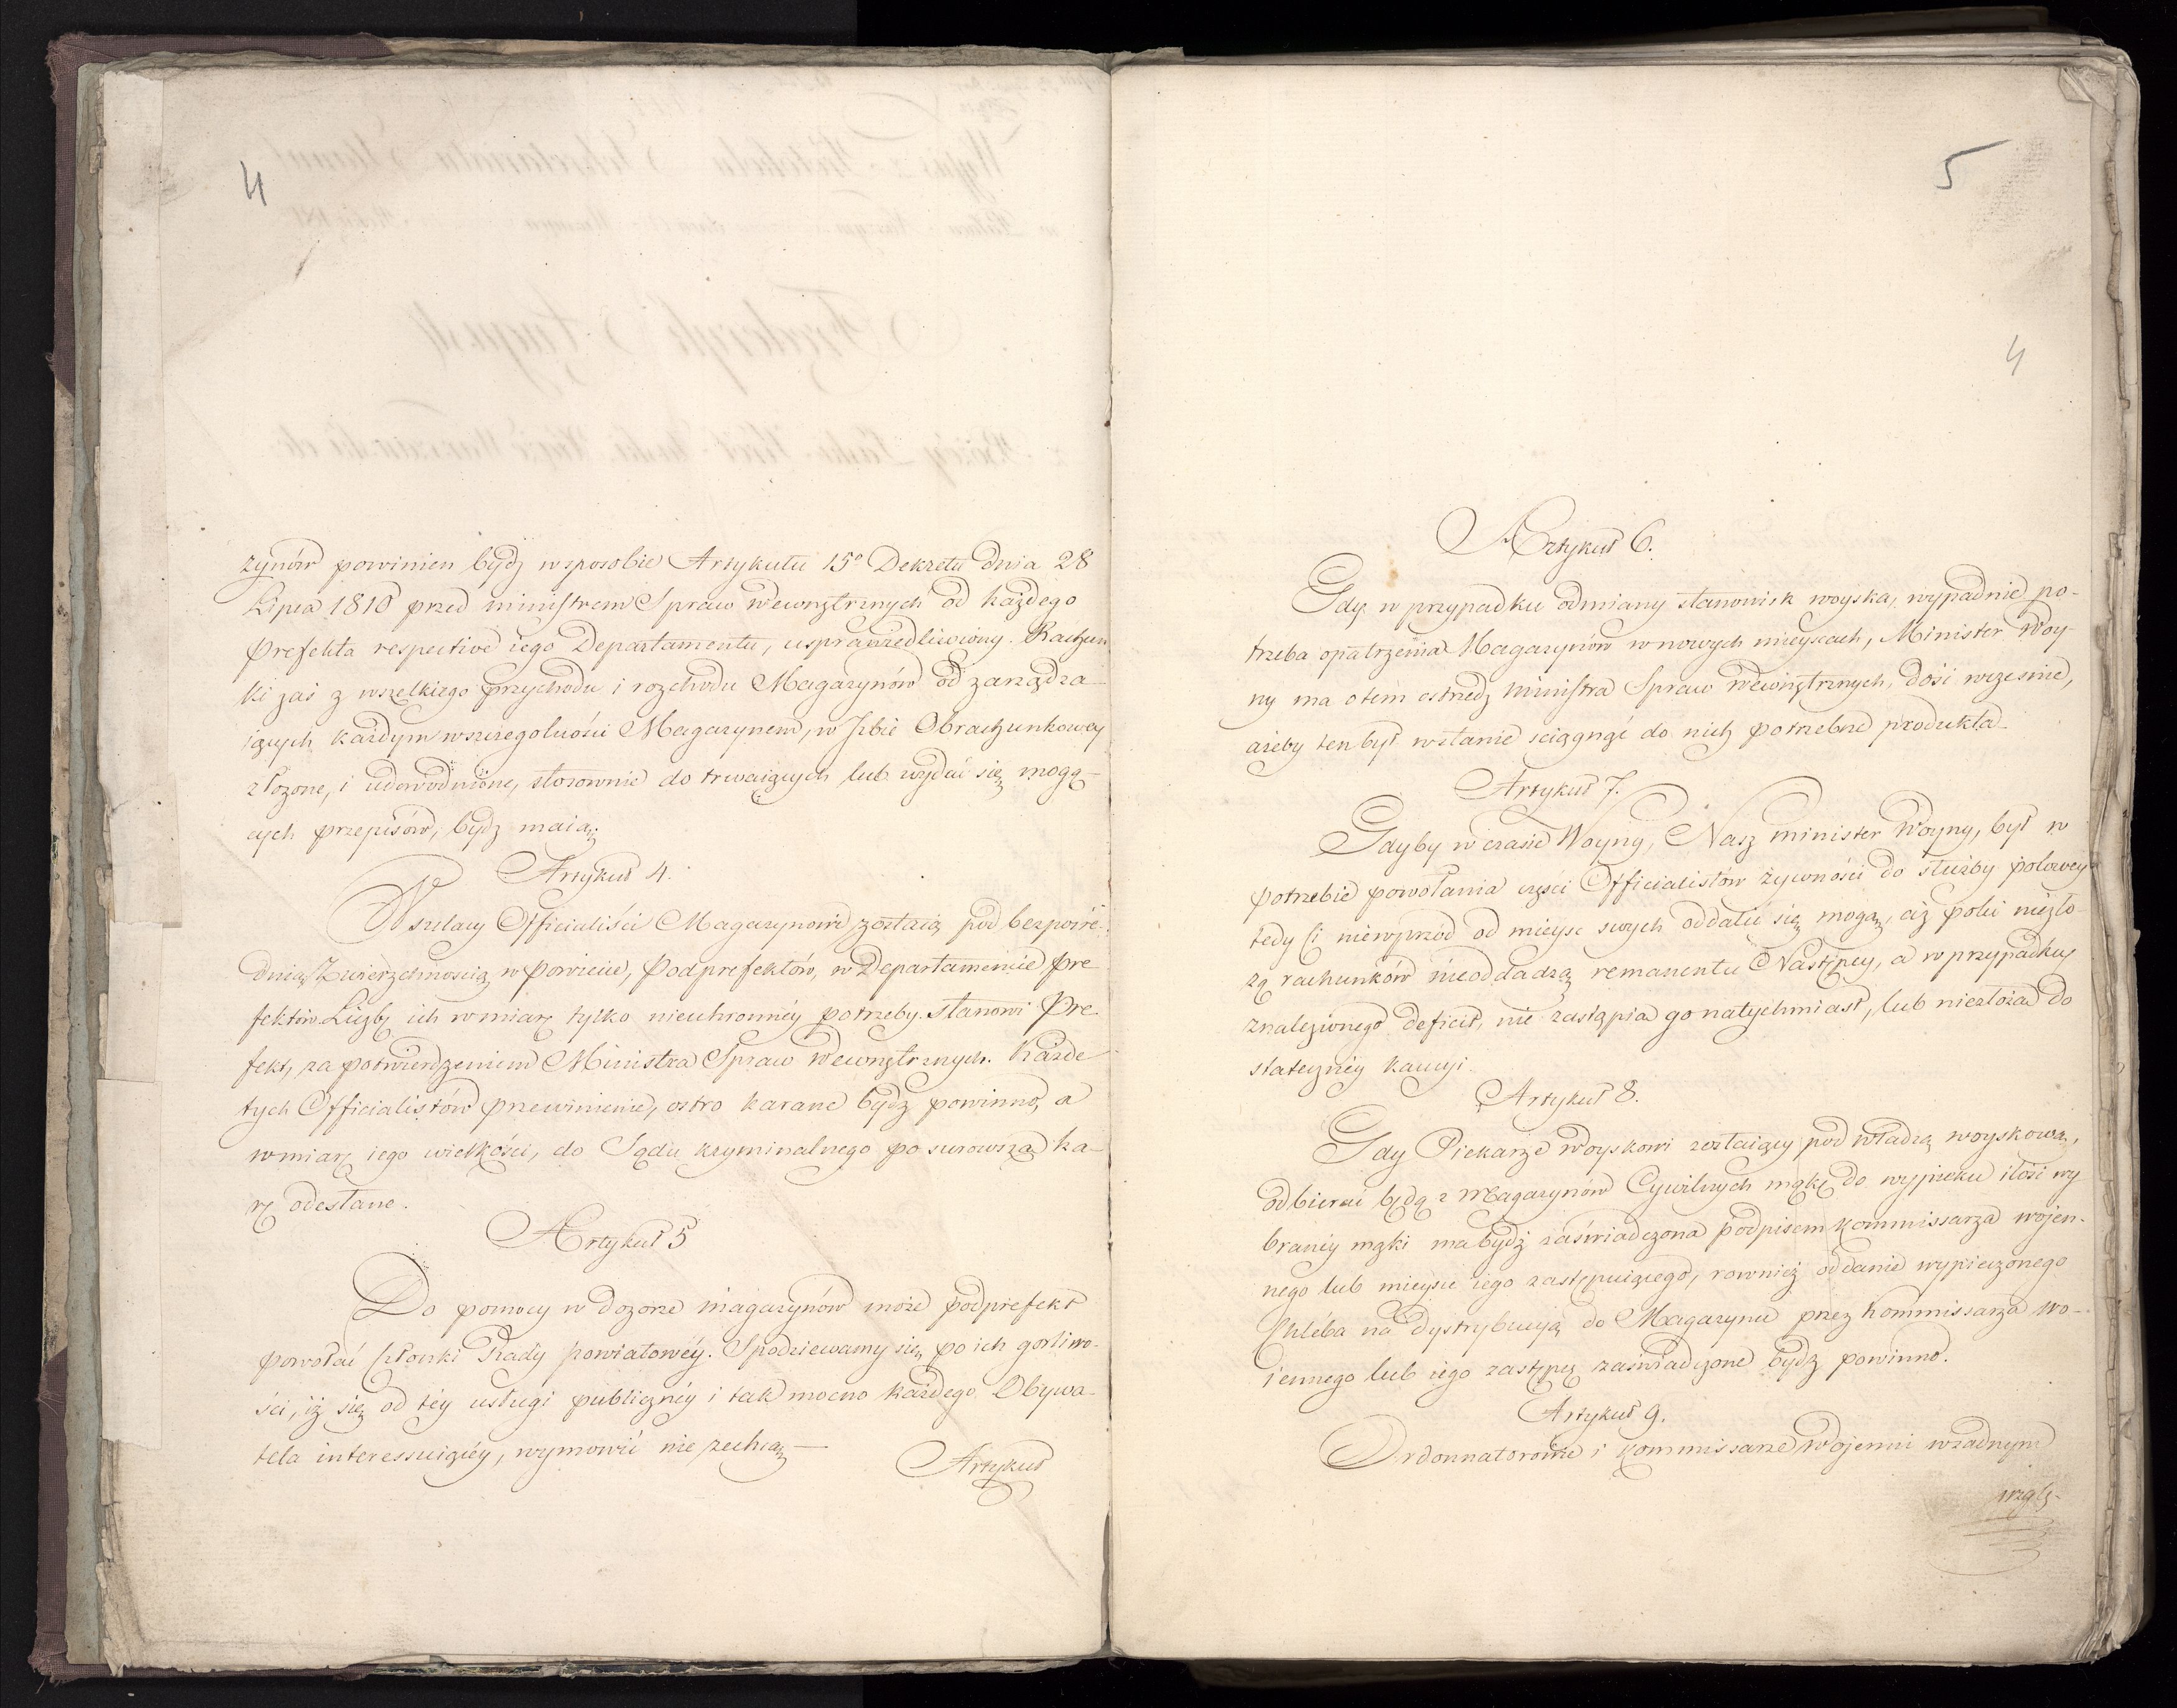 4
zynów powinien bydź wsposobie Artykułu 15° Dekretu dnia 28
Lipca 1810 przed ministrem Spraw Wewnętrznych od każdego
Prefekta respective iego Departamentu, usprawiedliwiony. Rachun
ki zaś z wszelkiego przychodu i rozchodu Magazynów od zarządza-
iących każdym wszczegolności Magazynem, w Izbie Obrachunkowey
złożone, i udowodnione, stosownie do trwaiących lub wydać się mogą-
cych przepisów, bydź maią.
Artykuł 4.
Wszelacy Officialiści Magazynowi zostaią pod bezpośre-
dnią Zwierzchnością w powiecie, Podprefektów, w Departamencie Pre
fektów. Liczbę ich wmiarę tylko nieuchronnéy potrzeby stanowi Pre
fekt, za potwierdzeniem Ministra Spraw Wewnętrznych. Każde
tych Officialistów przewinienie, ostro karane bydź powinno, a
wmiarę iego wielkości, do Sądu kryminalnego po surowszą ka-
rę odesłane.
Artykuł 5
Do pomocy w dozorze magazynów może podprefekt
powołać Członki Rady powiatowéy. Spodziewamy się, po ich gorliwo-
ści, iż się od téy usługi publicznéy i tak mocno każdego Obywa-
tela interessuiącéy, wymowić nie zechcą —
Artykuł
5
4
Artykuł 6.
Gdy w przypadku odmiany stanowisk woyska, wypadnie po-
trzeba opatrzenia Magazynów w nowych mieyscach, Minister Woy-
ny ma otem ostrzedz Ministra Spraw Wewnętrznych, dość wcześnie,
ażeby ten był wstanie ściągnąć do nich potrzebne produkta
Artykuł 7.
Gdyby wczasie Woyny, Nasz minister Woyny, był w
potrzebie powołania części Officialistów żywności do służby polowey
tedy Ci niewprzod od mieysc swych oddalić się mogą, aż poki niezło-
żą rachunków nieoddadzą remanentu Następcy, a w przypadku
znalezionego deficit, nie zastąpią go natychmiast, lub niezłożą do
statecznéy kaucyi.
Artykuł 8.
Gdy Piekarze Woyskowi zostaiący pod władzą woyskową,
odbierać będą z Magazynów Cywilnych mąkę do wypieku ilość wy
branéy mąki ma bydź zaświadczona podpisem kommissarza wojen-
nego lub mieysce iego zastępuiącego, rownież oddanie wypieczonego
Chléba na dystrybucyą do Magazynu przez kommissarza wo-
iennego lub iego zastępcę zaświadczone bydź powinno.
Artykuł 9.
Ordonnatorowie i kommissarze Wojenni wżadnym
wzglę-